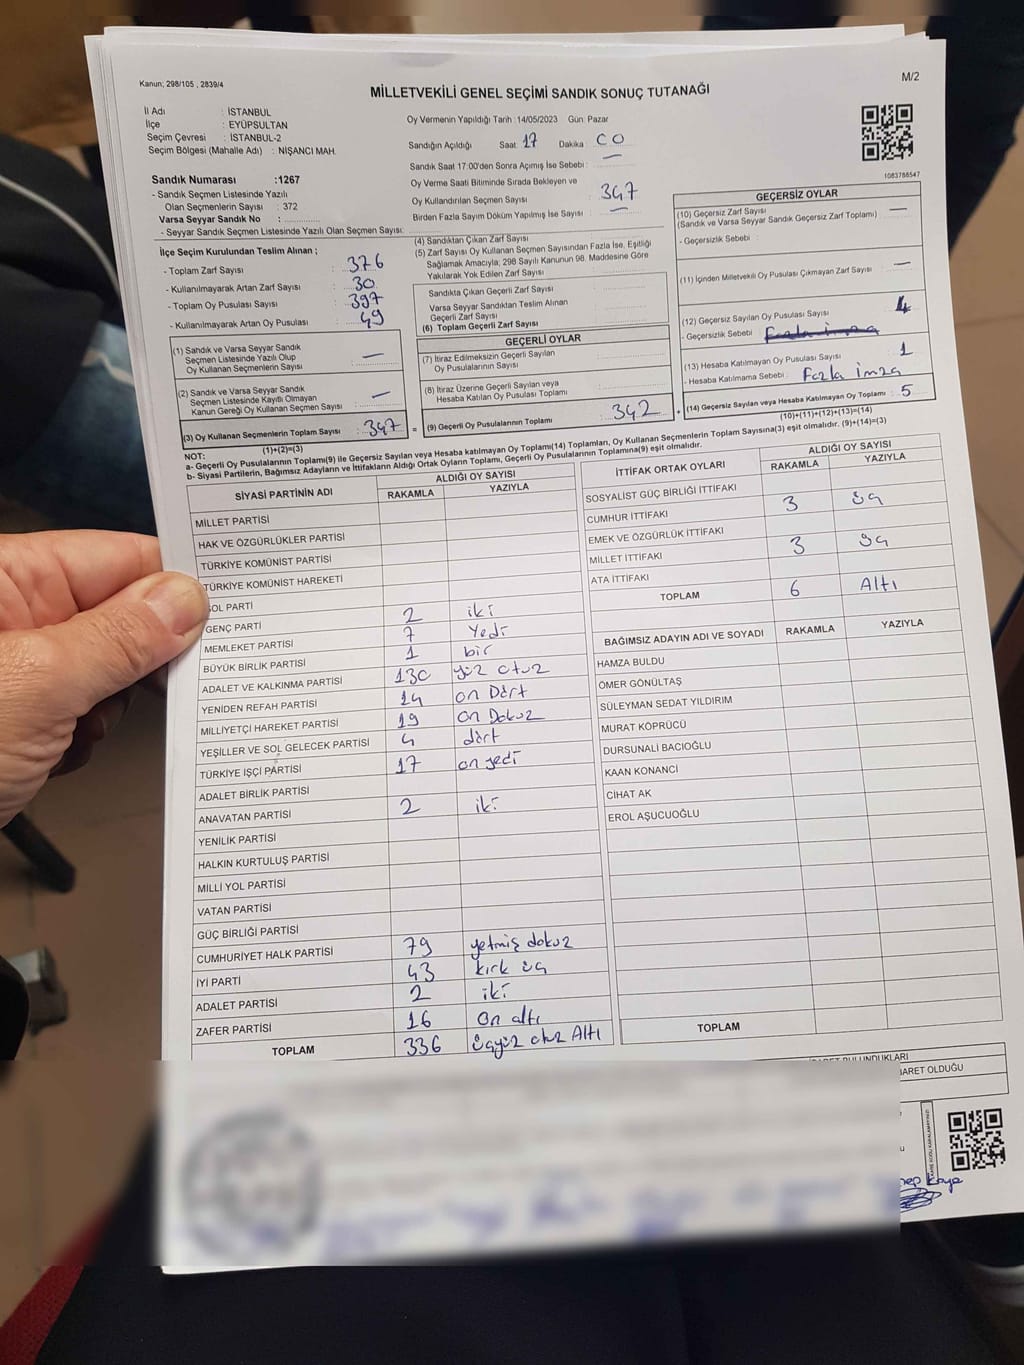 Kanun; 298/105 , 2839/4
M/2
MİLLETVEKİLİ GENEL SEÇİMİ SANDIK SONUÇ TUTANAĞI
İl Adı : İSTANBUL
İlçe : EYÜPSULTAN
Seçim Çevresi : İSTANBUL-2
Seçim Bölgesi (Mahalle Adı) : NİŞANCI MAH.
Sandık Numarası :1267
- Sandık Seçmen Listesinde Yazılı
Olan Seçmenlerin Sayısı : 372
Varsa Seyyar Sandık No :
- Seyyar Sandık Seçmen Listesinde Yazılı Olan Seçmen Sayısı:
Oy Vermenin Yapıldığı Tarih :14/05/2023 Gün: Pazar
Sandığın Açıldığı Saat 17 Dakika 00
Sandık Saat 17:00'den Sonra Açılmış İse Sebebi : —
Oy Verme Saati Bitiminde Sırada Bekleyen ve
Oy Kullandırılan Seçmen Sayısı : 347
Birden Fazla Sayım Döküm Yapılmış İse Sayısı : —
1083788547
İlçe Seçim Kurulundan Teslim Alınan ;
- Toplam Zarf Sayısı : 376
- Kullanılmayarak Artan Zarf Sayısı : 30
- Toplam Oy Pusulası Sayısı : 397
- Kullanılmayarak Artan Oy Pusulası : 49
(1) Sandık ve Varsa Seyyar Sandık
Seçmen Listesinde Yazılı Olup
Oy Kullanan Seçmenlerin Sayısı : —
(2) Sandık ve Varsa Seyyar Sandık
Seçmen Listesinde Kayıtlı Olmayan
Kanun Gereği Oy Kullanan Seçmen Sayısı : —
(3) Oy Kullanan Seçmenlerin Toplam Sayısı : 347
(1)+(2)=(3)
(4) Sandıktan Çıkan Zarf Sayısı :
(5) Zarf Sayısı Oy Kullanan Seçmen Sayısından Fazla İse, Eşitliği
Sağlamak Amacıyla; 298 Sayılı Kanunun 98. Maddesine Göre
Yakılarak Yok Edilen Zarf Sayısı :
Sandıkta Çıkan Geçerli Zarf Sayısı :
Varsa Seyyar Sandıktan Teslim Alınan
Geçerli Zarf Sayısı :
(6) Toplam Geçerli Zarf Sayısı :
GEÇERLİ OYLAR
(7) İtiraz Edilmeksizin Geçerli Sayılan
Oy Pusulalarının Sayısı :
(8) İtiraz Üzerine Geçerli Sayılan veya
Hesaba Katılan Oy Pusulası Toplamı :
= (9) Geçerli Oy Pusulalarının Toplamı : 342 +
GEÇERSİZ OYLAR
(10) Geçersiz Zarf Sayısı : —
(Sandık ve Varsa Seyyar Sandık Geçersiz Zarf Toplamı)
- Geçersizlik Sebebi :
(11) İçinden Milletvekili Oy Pusulası Çıkmayan Zarf Sayısı : —
(12) Geçersiz Sayılan Oy Pusulası Sayısı : 4
- Geçersizlik Sebebi : Fazla imza
(13) Hesaba Katılmayan Oy Pusulası Sayısı : 1
- Hesaba Katılmama Sebebi : Fazla imza
(14) Geçersiz Sayılan veya Hesaba Katılmayan Oy Toplamı : 5
(10)+(11)+(12)+(13)=(14)
NOT:
a- Geçerli Oy Pusulalarının Toplamı(9) ile Geçersiz Sayılan veya Hesaba katılmayan Oy Toplamı(14) Toplamları, Oy Kullanan Seçmenlerin Toplam Sayısına(3) eşit olmalıdır. (9)+(14)=(3)
b- Siyasi Partilerin, Bağımsız Adayların ve İttifakların Aldığı Ortak Oyların Toplamı, Geçerli Oy Pusulalarının Toplamına(9) eşit olmalıdır.
SİYASİ PARTİNİN ADI ALDIĞI OY SAYISI
RAKAMLA YAZIYLA
MİLLET PARTİSİ
HAK VE ÖZGÜRLÜKLER PARTİSİ
TÜRKİYE KOMÜNİST PARTİSİ
TÜRKİYE KOMÜNİST HAREKETİ
SOL PARTİ
GENÇ PARTİ 2 iki
MEMLEKET PARTİSİ 7 Yedi
BÜYÜK BİRLİK PARTİSİ 1 bir
ADALET VE KALKINMA PARTİSİ 130 yüz otuz
YENİDEN REFAH PARTİSİ 14 on Dört
MİLLİYETÇİ HAREKET PARTİSİ 19 on Dokuz
YEŞİLLER VE SOL GELECEK PARTİSİ 4 dört
TÜRKİYE İŞÇİ PARTİSİ 17 on yedi
ADALET BİRLİK PARTİSİ
ANAVATAN PARTİSİ 2 iki
YENİLİK PARTİSİ
HALKIN KURTULUŞ PARTİSİ
MİLLİ YOL PARTİSİ
VATAN PARTİSİ
GÜÇ BİRLİĞİ PARTİSİ
CUMHURİYET HALK PARTİSİ 79 yetmiş dokuz
İYİ PARTİ 43 kırk üç
ADALET PARTİSİ 2 iki
ZAFER PARTİSİ 16 On altı
TOPLAM 336 üçyüz otuz Altı
İTTİFAK ORTAK OYLARI ALDIĞI OY SAYISI
RAKAMLA YAZIYLA
SOSYALİST GÜÇ BİRLİĞİ İTTİFAKI
CUMHUR İTTİFAKI 3 üç
EMEK VE ÖZGÜRLÜK İTTİFAKI
MİLLET İTTİFAKI 3 üç
ATA İTTİFAKI
TOPLAM 6 Altı
BAĞIMSIZ ADAYIN ADI VE SOYADI RAKAMLA YAZIYLA
HAMZA BULDU
ÖMER GÖNÜLTAŞ
SÜLEYMAN SEDAT YILDIRIM
MURAT KÖPRÜCÜ
DURSUNALİ BACIOĞLU
KAAN KONANCİ
CİHAT AK
EROL AŞUCUOĞLU
TOPLAM
BULUNDUKLARI
OLDUĞU
Kaya